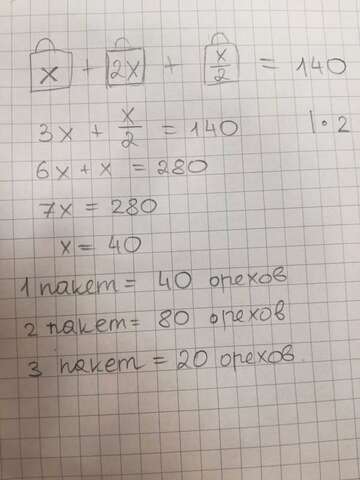 x + 2x + x/2 = 140
3x + x/2 = 140 |·2
6x + x = 280
7x = 280
x = 40
1 пакет = 40 орехов
2 пакет = 80 орехов
3 пакет = 20 орехов